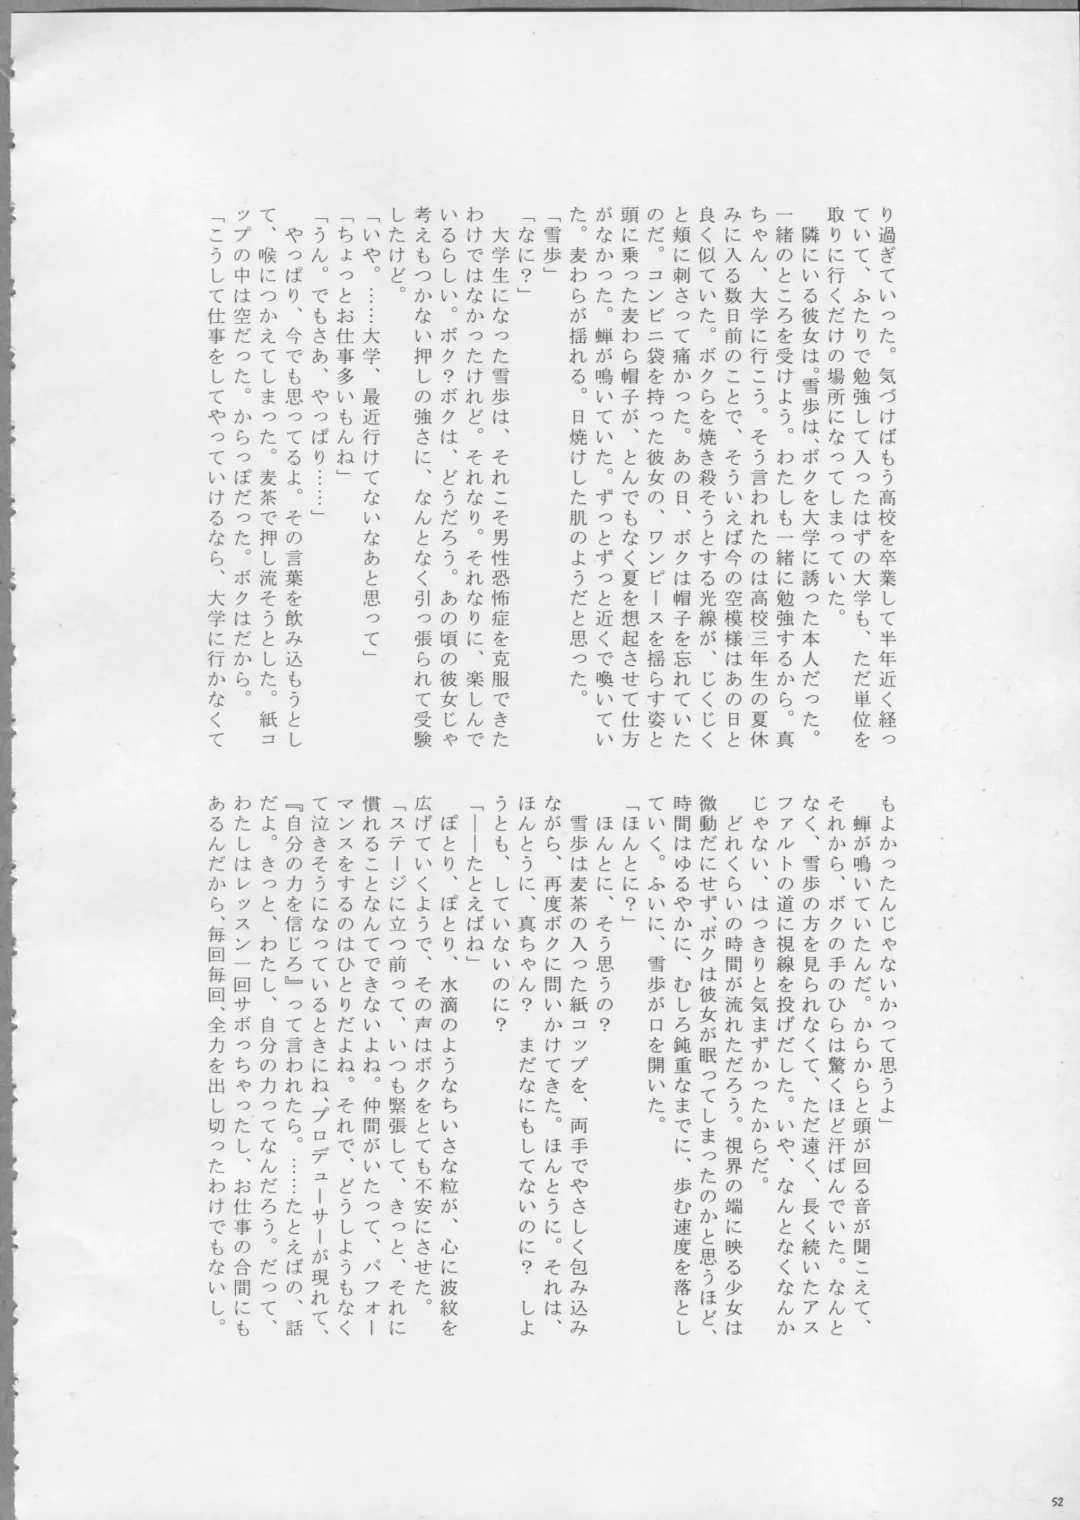 り過ぎていった。気づけばもう高校を卒業して半年近く経っ
ていて、ふたりで勉強して入ったはずの大学も、ただ単位を
取りに行くだけの場所になってしまっていた。
隣にいる彼女は。雪歩は、ボクを大学に誘った本人だった。
一緒のところを受けよう。わたしも一緒に勉強するから。真
ちゃん、大学に行こう。そう言われたのは高校三年生の夏休
みに入る数日前のことで、そういえば今の空模様はあの日と
良く似ていた。ボクらを焼き殺そうとする光線が、じくじく
と頬に刺さって痛かった。あの日、ボクは帽子を忘れていた
のだ。コンビニ袋を持った彼女の、ワンピースを揺らす姿と
頭に乗った麦わら帽子が、とんでもなく夏を想起させて仕方
がなかった。蝉が鳴いていた。ずっとずっと近くで喚いてい
た。麦わらが揺れる。日焼けした肌のようだと思った。
「雪歩」
「なに？」
大学生になった雪歩は、それこそ男性恐怖症を克服できた
わけではなかったけれど。それなり。それなりに、楽しんで
いるらしい。ボク？ボクは、どうだろう。あの頃の彼女じゃ
考えもつかない押しの強さに、なんとなく引っ張られて受験
したけど。
「いや。……大学、最近行けてないなあと思って」
「ちょっとお仕事多いもんね」
「うん。でもさあ、やっぱり……」
やっぱり、今でも思ってるよ。その言葉を飲み込もうとし
て、喉につかえてしまった。麦茶で押し流そうとした。紙コ
ップの中は空だった。からっぽだった。ボクはだから。
「こうして仕事をしてやっていけるなら、大学に行かなくて
もよかったんじゃないかって思うよ」
蝉が鳴いていたんだ。からからと頭が回る音が聞こえて、
それから、ボクの手のひらは驚くほど汗ばんでいた。なんと
なく、雪歩の方を見られなくて、ただ遠く、長く続いたアス
ファルトの道に視線を投げだした。いや、なんとなくなんか
じゃない、はっきりと気まずかったからだ。
どれくらいの時間が流れただろう。視界の端に映る少女は
微動だにせず、ボクは彼女が眠ってしまったのかと思うほど、
時間はゆるやかに、むしろ鈍重なまでに、歩む速度を落とし
ていく。ふいに、雪歩が口を開いた。
「ほんとに？」
ほんとに、そう思うの？
雪歩は麦茶の入った紙コップを、両手でやさしく包み込み
ながら、再度ボクに問いかけてきた。ほんとうに。それは、
ほんとうに、真ちゃん？　まだなにもしてないのに？　しよ
うとも、していないのに？
「――たとえばね」
ぽとり、ぽとり、水滴のようなちいさな粒が、心に波紋を
広げていくようで、その声はボクをとても不安にさせた。
「ステージに立つ前って、いつも緊張して、きっと、それに
慣れることなんてできないよね。仲間がいたって、パフォー
マンスをするのはひとりだよね。それで、どうしようもなく
て泣きそうになっているときにね、プロデューサーが現れて、
『自分の力を信じろ』って言われたら。……たとえばの、話
だよ。きっと、わたし、自分の力ってなんだろう。だって、
わたしはレッスン一回サボっちゃったし、お仕事の合間にも
あるんだから、毎回毎回、全力を出し切ったわけでもないし。
52